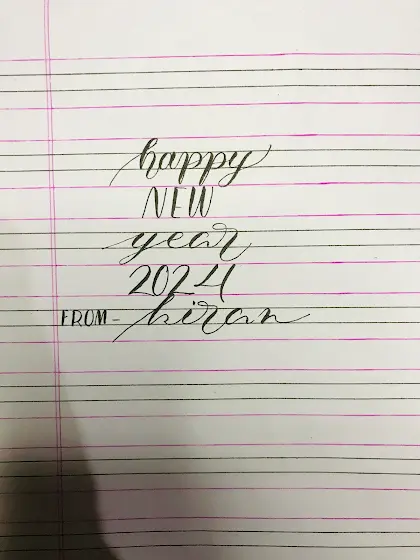 happy
NEW
year
2024
FROM- kiran